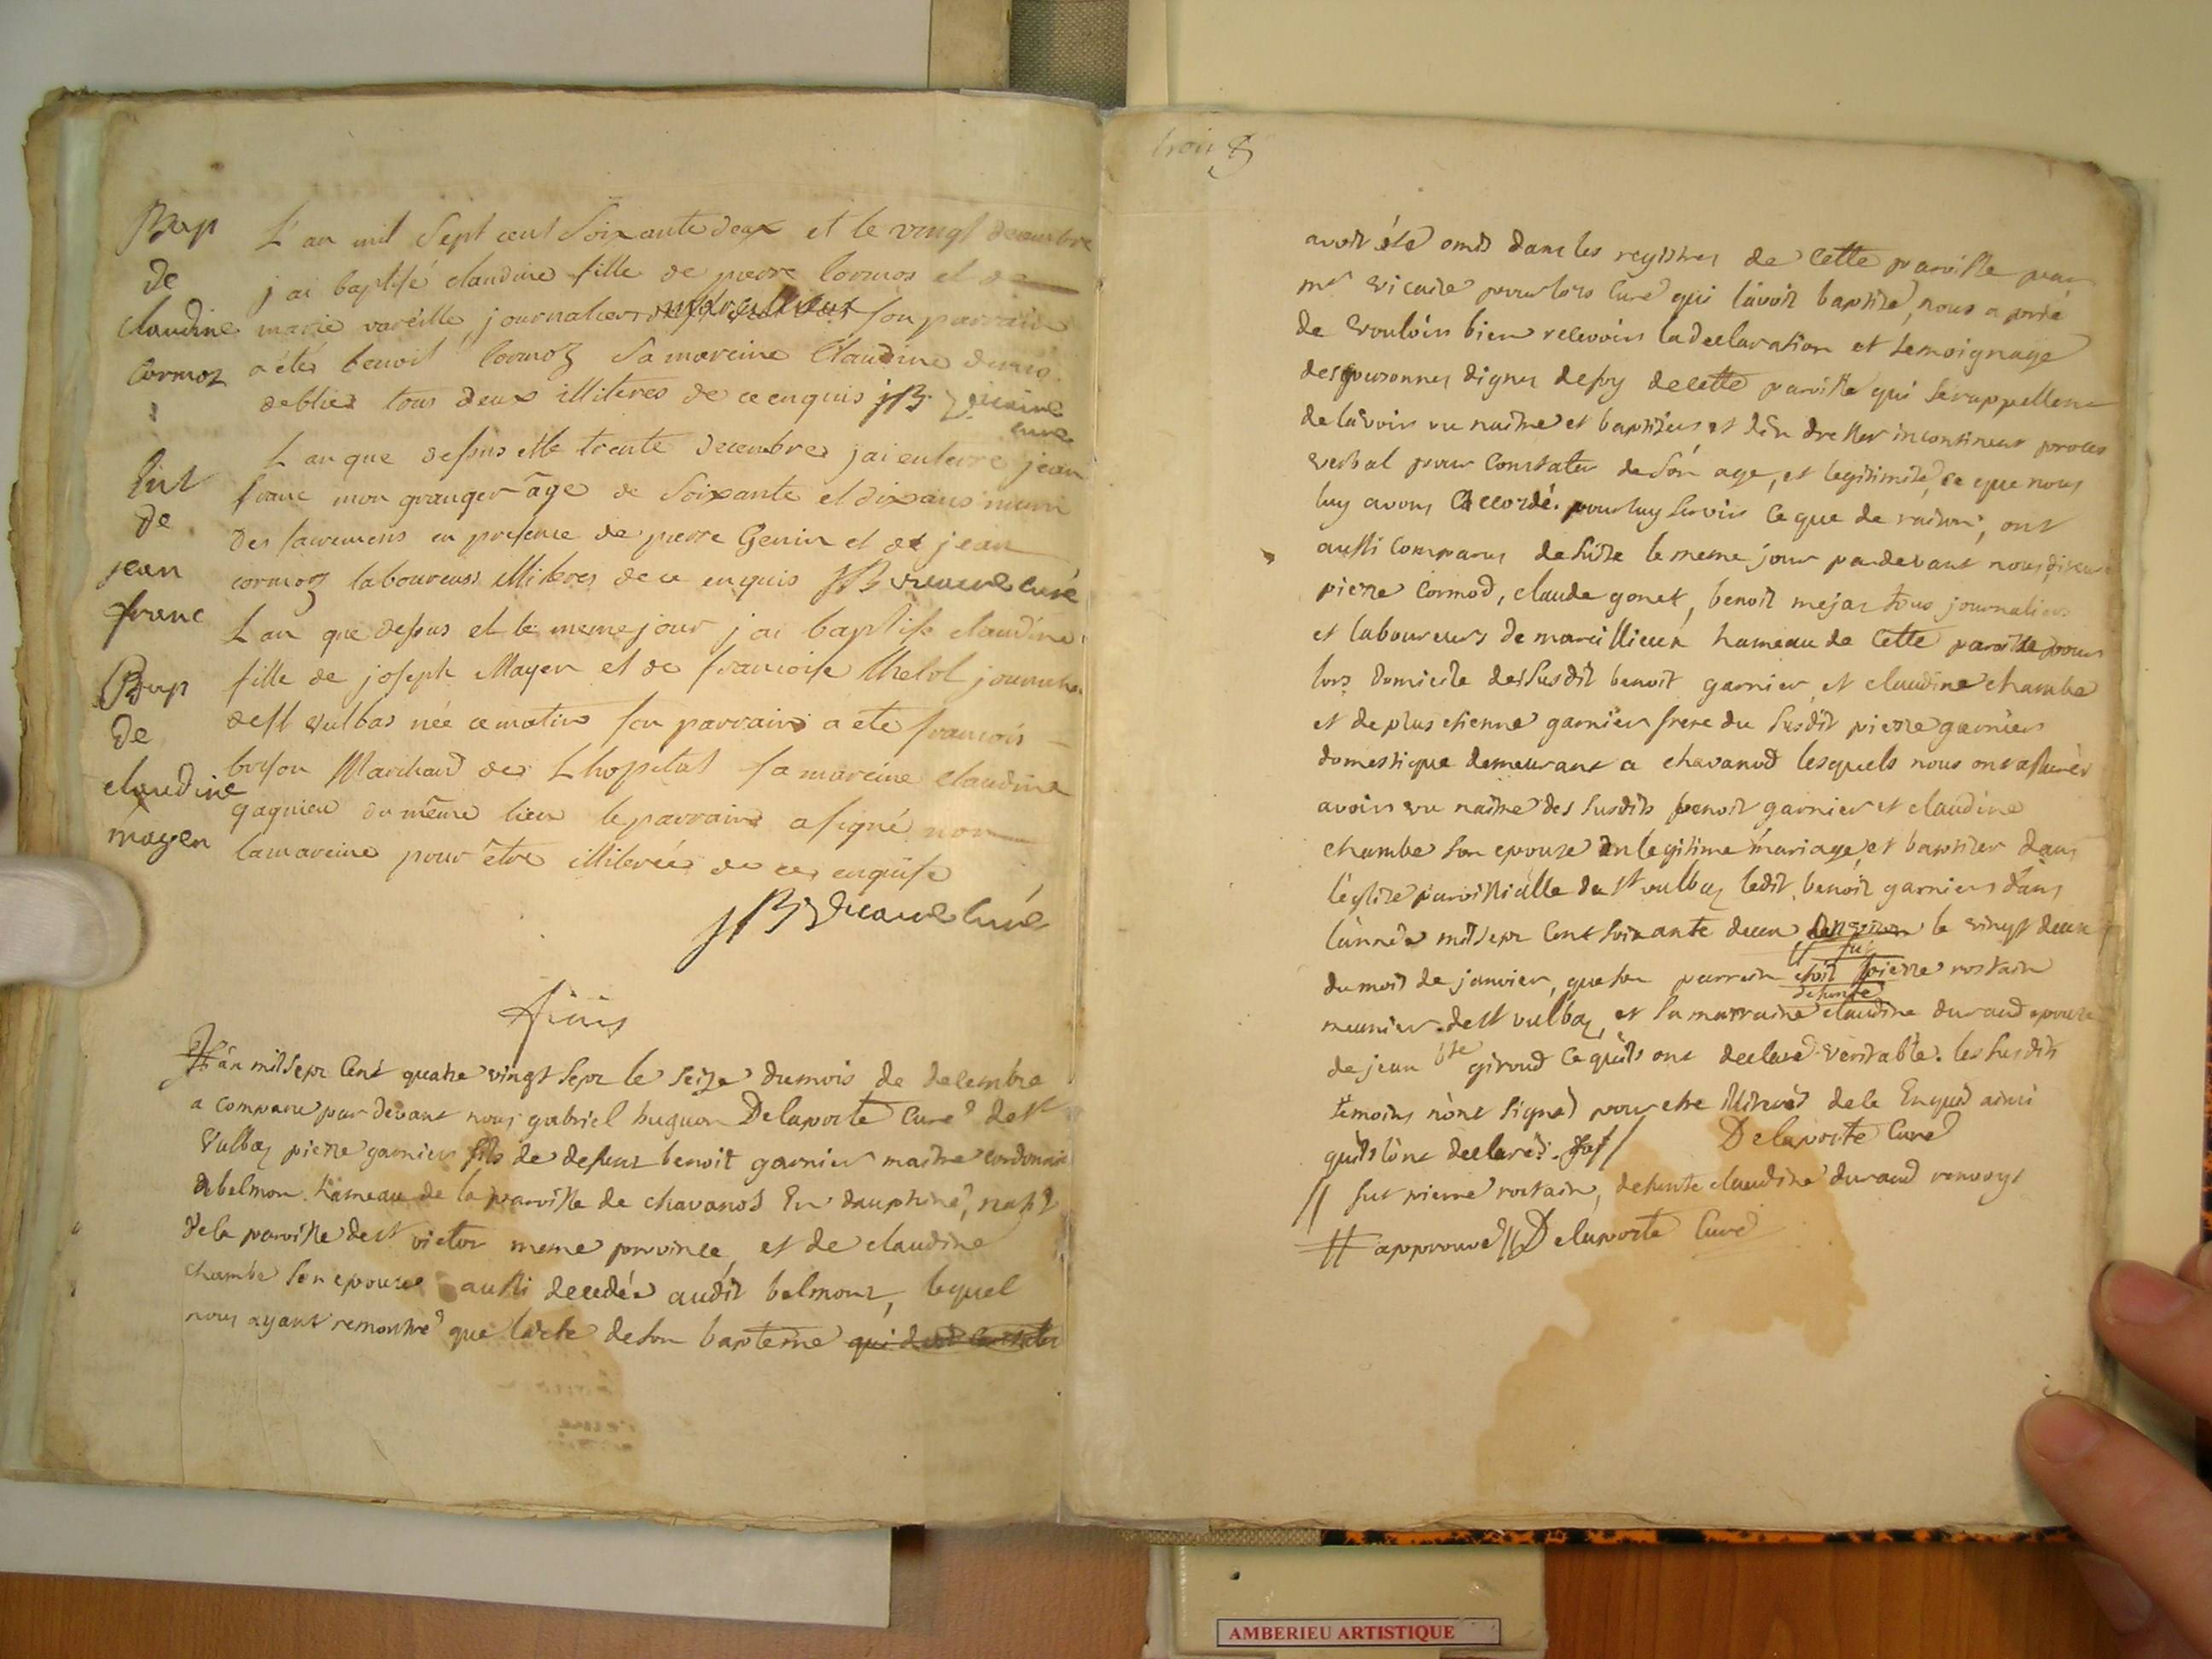 Bap
de
claudine
Cormoz
L'an mil Sept cent Soixante deux et le vingt decembre
j'ai baptisé claudine fille de pierre Cormos et de
marie vareille, journaliers son parrain
a étés benoit Cormoz Sa mareine Claudine
deblies tous deux illiteres de ce enquis JB Vicaire
curé
Ent
de
jean
franc
L'an que dessus et le trente decembre j'ai enterre jean
franc mon granger âge de Soixante et dix ans muni
des sacremens en presence de pierre Genin et de jean
cormoz laboureurs illiteres de ce enquis JB vicaire curé
Bap
de
claudine
mayen
L an que dessus et le meme jour j ai baptise claudine
fille de joseph Mayen et de francoise thelol
de st vulbas née ce matin son parrain a ete francois
buison Marchand de Lhopital sa mareine claudine
gagnieu du même lieu le parrain a signé non
la mareine pour être illiterée de ce enquise
JB Vicaire Curé
finis
# L'an mil sept Cent quatre vingt Sept le Seize du mois de decembre
a comparu par devant nous gabriel huguon Delaporte Curé de st
Vulbaz pierre garnier fils de defunt benoit garnier maitre cordonnier
de belmon hameau de la paroisse de chavanod En dauphiné, natif
de la paroisse de st victor meme province, et de claudine
chambe son epouse aussi decedée audit belmont, lequel
nous ayant remontré que lacte de son bapteme qui doit constater
trois
avoit été omis dans les registres de Cette paroisse par
mr vicaire pour lors Curé qui l'avoit baptisé, nous a prié
de vouloir bien recevoir la declaration et temoignage
des personnes dignes de foy de cette paroisse qui se rappellent
de l'avoir vu naitre et baptiser, et d'en dresser incontinent proces
verbal pour Constater de son age, et legitimité, ce que nous
luy avons accordé. pour luy servir ce que de raison, ont
aussi comparus de suite le meme jour pardevant nous
pierre Cormod, claude gonet, benoit mejat tous journaliers
et laboureurs de marcillieux hameau de Cette paroisse pour
lors domicile des susdit benoit garnier et claudine chambe
et de plus etienne garnier frere du susdit pierre garnier
domestique demeurant a chavanod lesquels nous ont assurés
avoir vu naitre des susdits benoit garnier et claudine
chambe son epouse en legitime mariage, et baptiser dans
l'eglise paroissialle de st vulbaz ledit benoit garnier dans
l'année mil sept Cent soixante deux le vingt deux
du mois de janvier, que son parrain etoit // fut pierre rostain
meunier de st vulbaz, et sa marraine defunte claudine durand epouse
de jean bte giroud ce qu'ils ont declaré veritable. les susdits
temoins n'ont signé pour etre illiterés de le Enquis ainsi
qu'ils l'ont declarés. Delaporte Curé
// fut pierre rostain, defunte claudine durand renvoys
# approuvé // Delaporte Curé
AMBERIEU ARTISTIQUE